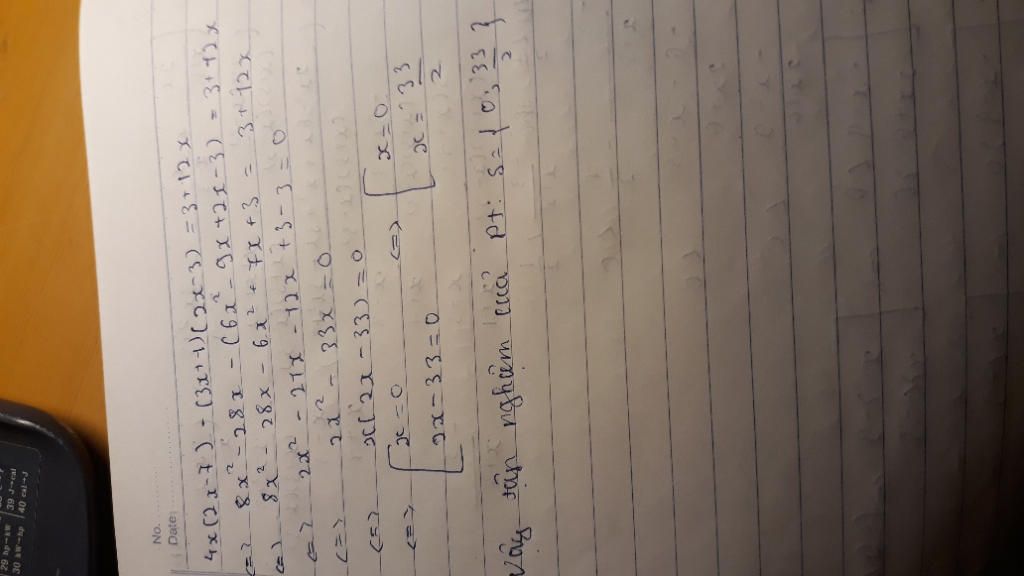 No. ......
Date:
4x(2x-7) - (3x+1)(2x-3) = 3+12x
<=> 8x² - 28x - (6x² - 9x + 2x - 3) = 3+12x
<=> 8x² - 28x - 6x² + 7x + 3 = 3+12x
<=> 2x² - 21x - 12x + 3 - 3 = 0
<=> 2x² - 33x = 0
<=> x(2x - 33) = 0
<=> [x=0 <=> [x=0
2x-33=0 x=33/2
Vậy tập nghiệm của pt: S={0;33/2}
29 hp→kW
30 kW→hp
39 J→cal
40 cal→J